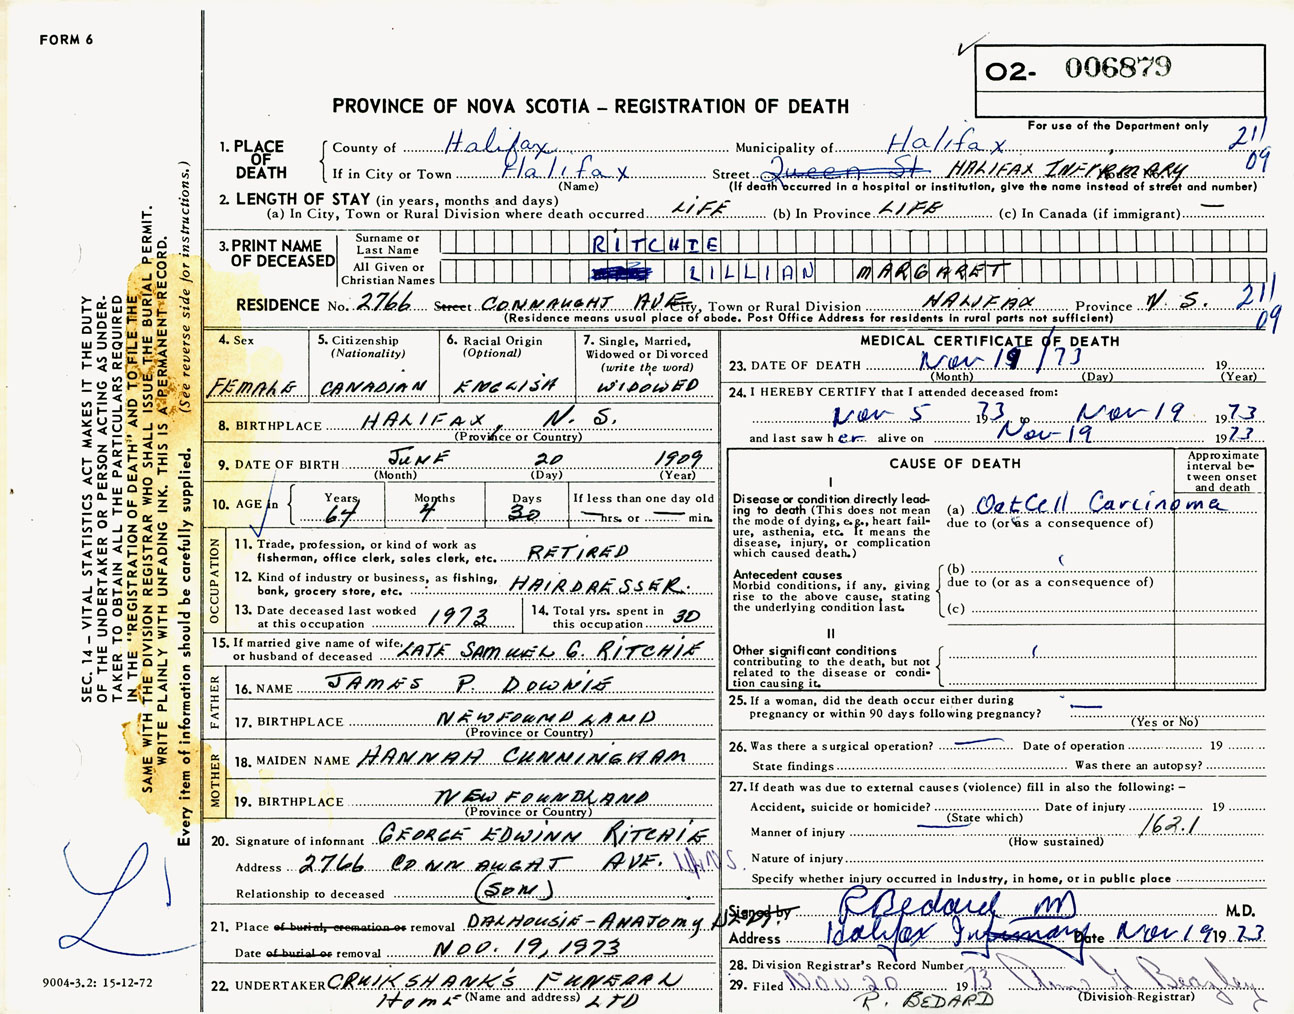 FORM 6
O2- 006879
PROVINCE OF NOVA SCOTIA – REGISTRATION OF DEATH
For use of the Department only
1. PLACE OF DEATH
County of Halifax Municipality of Halifax 211
If in City or Town Halifax Street Queen St HALIFAX INFIRMARY 09
(Name) (If death occurred in a hospital or institution, give the name instead of street and number)
2. LENGTH OF STAY (in years, months and days)
(a) In City, Town or Rural Division where death occurred LIFE (b) In Province LIFE (c) In Canada (if immigrant) —
3. PRINT NAME OF DECEASED
Surname or Last Name RITCHIE
All Given or Christian Names LILLIAN MARGARET
RESIDENCE No. 2766 Street CONNAUGHT AVE City, Town or Rural Division HALIFAX Province N. S. 211
09
(Residence means usual place of abode. Post Office Address for residents in rural parts not sufficient)
4. Sex
FEMALE
5. Citizenship
(Nationality)
CANADIAN
6. Racial Origin
(Optional)
ENGLISH
7. Single, Married,
Widowed or Divorced
(write the word)
WIDOWED
8. BIRTHPLACE HALIFAX, N. S.
(Province or Country)
9. DATE OF BIRTH JUNE 20 1909
(Month) (Day) (Year)
10. AGE in
Years 64
Months 4
Days 30
If less than one day old
— hrs. or — min.
OCCUPATION
11. Trade, profession, or kind of work as
fisherman, office clerk, sales clerk, etc. RETIRED
12. Kind of industry or business, as fishing,
bank, grocery store, etc. HAIRDRESSER.
13. Date deceased last worked
at this occupation 1973
14. Total yrs. spent in
this occupation 30
15. If married give name of wife
or husband of deceased LATE SAMUEL G. RITCHIE
FATHER
16. NAME JAMES P. DOWNIE
17. BIRTHPLACE NEWFOUNDLAND
(Province or Country)
MOTHER
18. MAIDEN NAME HANNAH CUNNINGHAM
19. BIRTHPLACE NEWFOUNDLAND
(Province or Country)
20. Signature of informant GEORGE EDWINN RITCHIE
Address 2766 CONNAUGHT AVE.
Relationship to deceased (SON)
21. Place of burial, cremation or removal DALHOUSIE – ANATOMY DEPT.
Date of burial or removal NOV. 19, 1973
22. UNDERTAKER CRUIKSHANK'S FUNERAL
HOME (Name and address) LTD
MEDICAL CERTIFICATE OF DEATH
23. DATE OF DEATH Nov 19/73 19
(Month) (Day) (Year)
24. I HEREBY CERTIFY that I attended deceased from:
Nov 5 1973 to Nov 19 1973
and last saw her alive on Nov 19 1973
CAUSE OF DEATH
Approximate
interval be-
tween onset
and death
I
Disease or condition directly lead-
ing to death (This does not mean
the mode of dying, e.g., heart fail-
ure, asthenia, etc. It means the
disease, injury, or complication
which caused death.)
(a) Oat Cell Carcinoma
due to (or as a consequence of)
Antecedent causes
Morbid conditions, if any, giving
rise to the above cause, stating
the underlying condition last.
(b)
due to (or as a consequence of)
(c)
II
Other significant conditions
contributing to the death, but not
related to the disease or condi-
tion causing it.
25. If a woman, did the death occur either during
pregnancy or within 90 days following pregnancy? —
(Yes or No)
26. Was there a surgical operation? — Date of operation 19
State findings Was there an autopsy?
27. If death was due to external causes (violence) fill in also the following: –
Accident, suicide or homicide? Date of injury 19
(State which)
Manner of injury 162.1
(How sustained)
Nature of injury
Specify whether injury occurred in Industry, in home, or in public place
Signed by R Bedard MD M.D.
Address Halifax Infirmary Date Nov 19 1973
28. Division Registrar's Record Number
29. Filed Nov. 20 1973
R. BEDARD (Division Registrar)
SEC. 14 – VITAL STATISTICS ACT MAKES IT THE DUTY
OF THE UNDERTAKER OR PERSON ACTING AS UNDER-
TAKER TO OBTAIN ALL THE PARTICULARS REQUIRED
IN THE "REGISTRATION OF DEATH" AND TO FILE THE
SAME WITH THE DIVISION REGISTRAR WHO SHALL ISSUE THE BURIAL PERMIT.
WRITE PLAINLY WITH UNFADING INK. THIS IS A PERMANENT RECORD.
Every item of information should be carefully supplied. (See reverse side for instructions.)
9004-3.2: 15-12-72